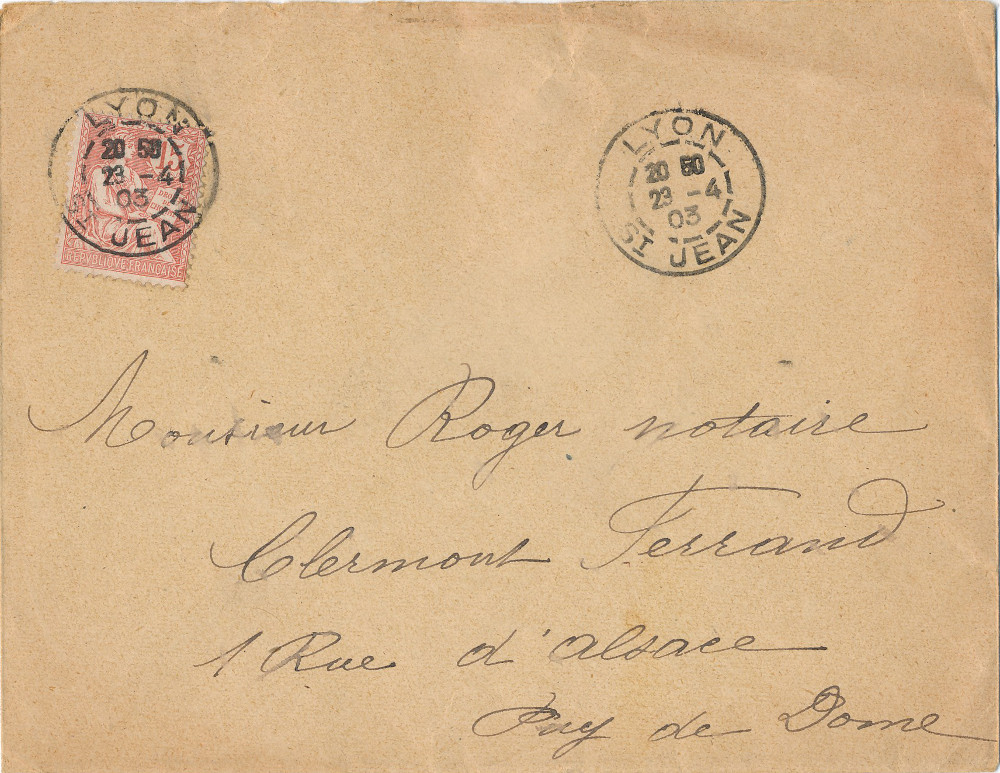 LYON
20 50
23 -4
03
ST JEAN
15
REPVBLIQVE FRANÇAISE
LYON
20 50
23 -4
03
ST JEAN
Monsieur Roger notaire
Clermont Ferrand
1 Rue d'alsace
Puy de Dome